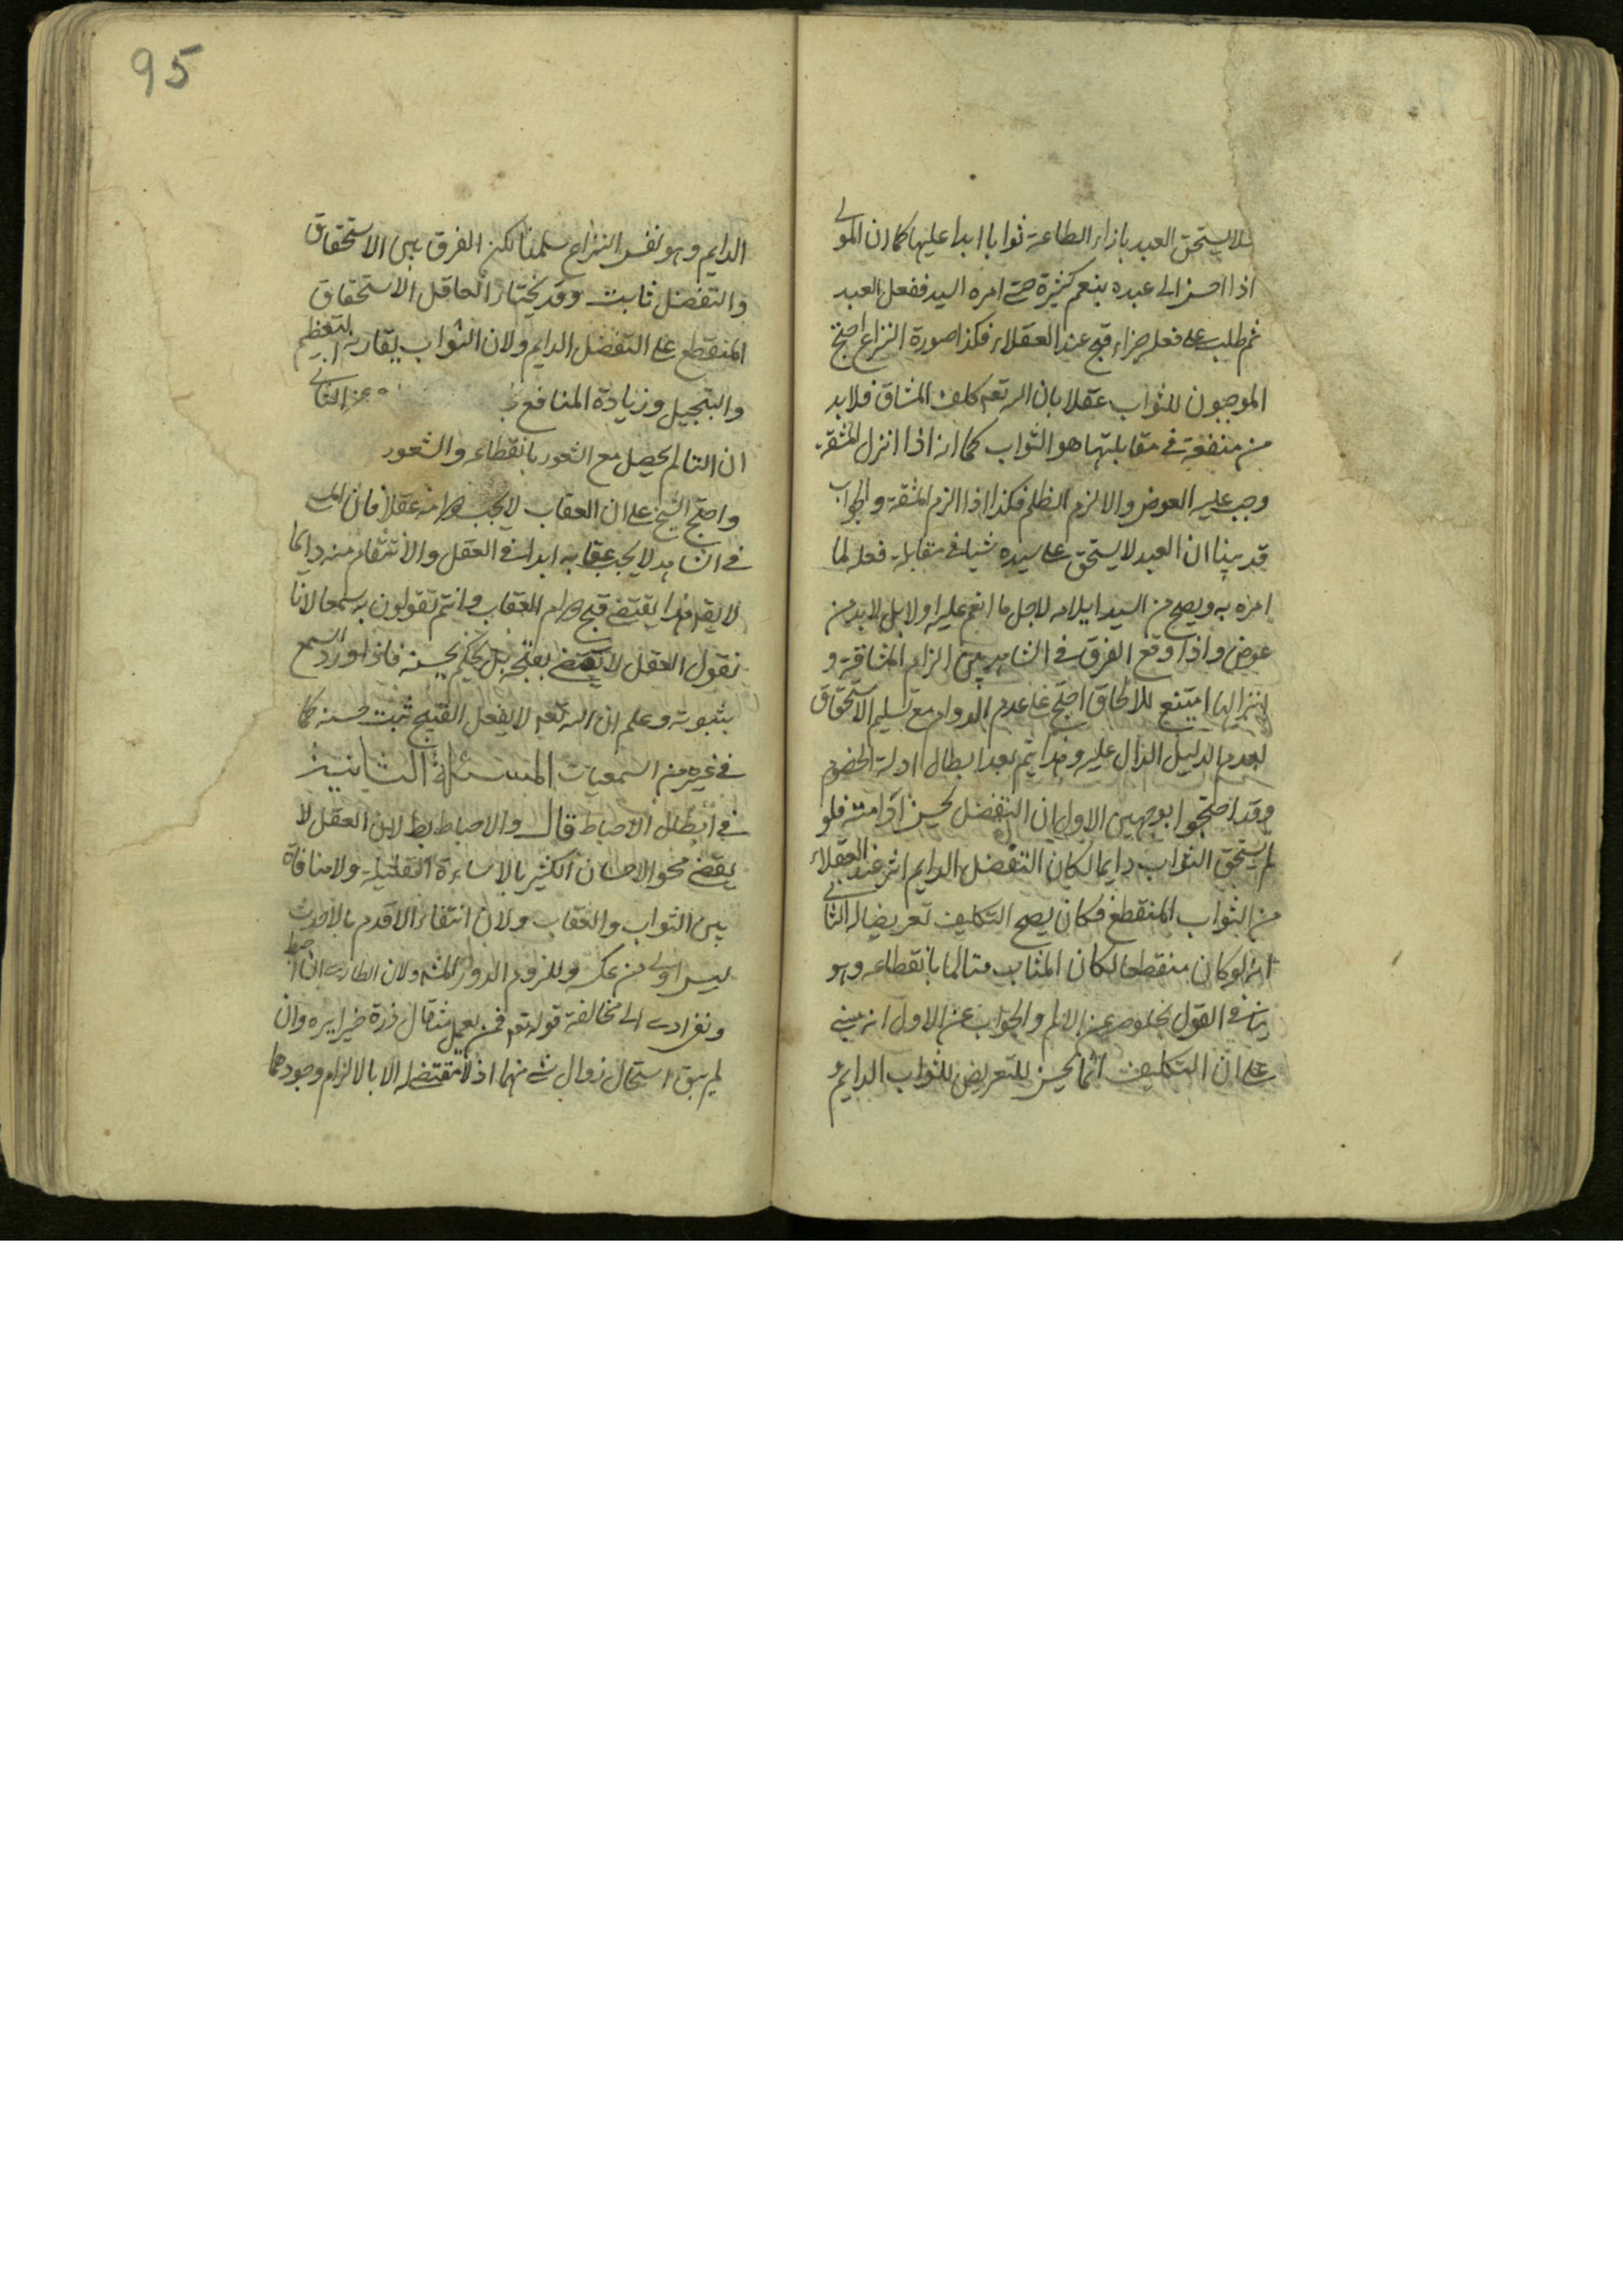 فلا يستحق العبد بازاء الطاعة ثوابا ابدا عليها كما ان المولى
اذا احسن الى عبده بنعم كثيرة حتى امره السيد ففعل العبد
ثم طلب على فعله جزاء قبح عند العقلاء فكذا صورة النزاع احتج
الموجبون للثواب عقلا بان الله تعم كلف المشاق فلا بد
من منفعة في مقابلتها هو الثواب كما انه اذا انزل المشقة
وجب عليه العوض والا لزم الظلم فكذا اذا الزم المشقة والجواب
قد بينا ان العبد لا يستحق على سيده شيا في مقابلة فعله لما
امره به ويصح من السيد ايلامه لاجل ما انعم عليه اولا بل لا بد من
عوض واذا وقع الفرق في الشاهد بين الزام المشاقة و
انزالها امتنع للالحاق احتج على عدم الدوام مع تسليم الاستحقاق
لعدم الدليل الدال عليه وهذا يتم بعد ابطال ادلة الخصوم
وقد احتجوا بوجهين الاول ان التفضل يحسن فلو
لم يستحق الثواب دايما لكان التفضل الدايم اثر عند العقلاء
من الثواب المنقطع فكان يصح التكليف تعريضا له الثاني
انه لو كان منقطعا لكان المثاب متالما بانقطاعه وهو
ينافي القول بخلوصه عن الالم والجواب عن الاول انه مبني
على ان التكليف انما يحسن للتعريض للثواب الدايم و
الدايم وهو نفس النزاع سلمنا لكن الفرق بين الاستحقاق
والتفضل ثابت وقد يختار العاقل الاستحقاق
المنقطع على التفضل الدايم ولان الثواب يقارنه التعظيم
والتبجيل وزيادة المنافع وعن الثاني
ان التالم يحصل مع الشعور بانقطاعه والشعور
واحتج الشيخ على ان العقاب لا يجب دوامه عقلا فان المسي
في الشاهد لا يجب عقابه ابدا في العقل والانتقام منه دايما
لا يقم هذا يقتضي قبح دوام العقاب وانتم تقولون به سمعا لانا
نقول العقل لا يقتضي بقبحه بل يحكم بحسنه فاذا ورد السمع
بثبوته وعلم ان الله تعم لا يفعل القبيح ثبت حسنه كما
في غيره من السمعيات المسئلة الثانية
في ابطال الاحباط قال والاحباط بط لان العقل لا
يقضي محو الاحسان الكثير بالاساءة القليلة ولا منافاة
بين الثواب والعقاب ولان انتفاء الاقدم بالاحدث
ليس اولى من عكسه وللزوم الدور ولان الطاري ان احبط
ونفر ادى الى مخالفة قوله تعم فمن يعمل مثقال ذرة خيرا يره وان
لم يبق استحال زوال شي منهما اذ لا مقتضى له الا بالالزام وجودهما
95